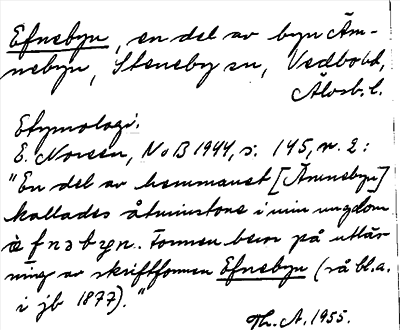 Efnebyn, en del av byn Äm-
nebyn, Steneby sn, Vedbo hd,
Älvsb. l.
Etymologi.
E. Noreen, NoB 1944, s. 145, n. 2:
"En del av hemmanet [Ämnebyn]
kallades åtminstone i min ungdom
èfnəbyn. Formen beror på uttal-
ning av skriftformen Efnebyn (så bl.a.
i jb 1877)."
Th. A. 1955.